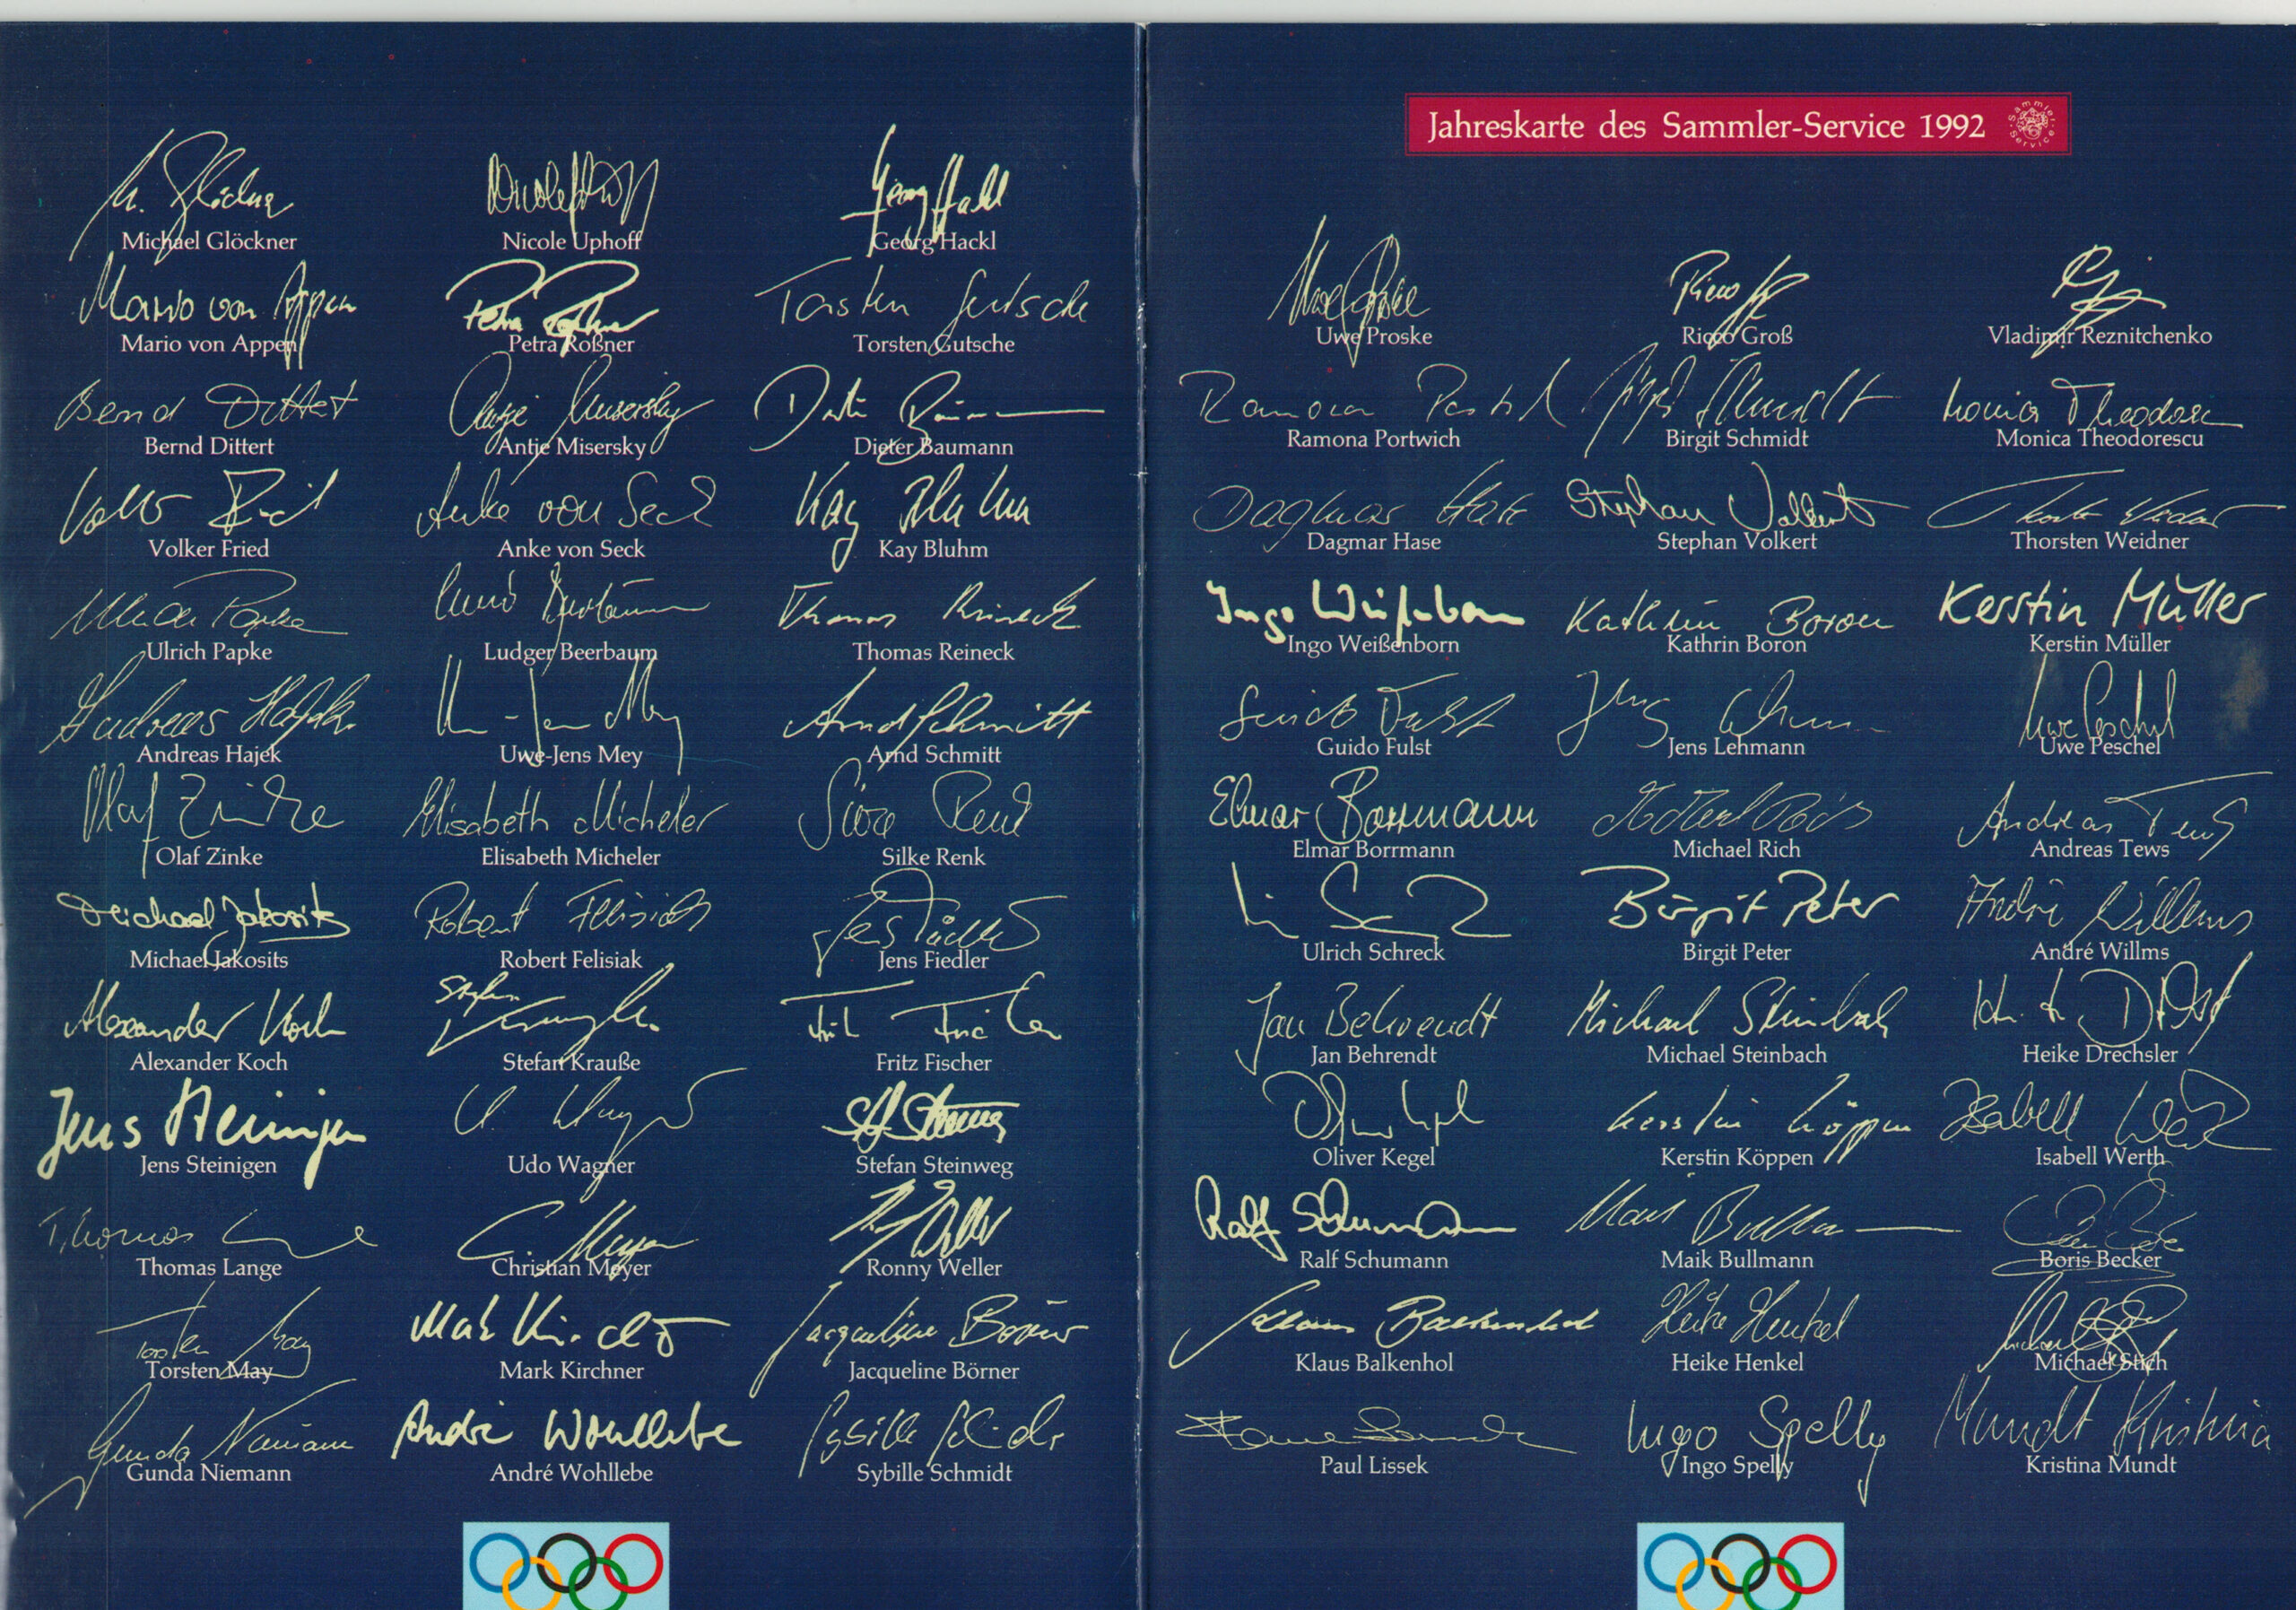 Michael Glöckner Nicole Uphoff Georg Hackl
Mario von Appen Petra Roßner Torsten Gutsche
Bernd Dittert Antje Misersky Dieter Baumann
Volker Fried Anke von Seck Kay Bluhm
Ulrich Papke Ludger Beerbaum Thomas Reineck
Andreas Hajek Uwe-Jens Mey Arnd Schmitt
Olaf Zinke Elisabeth Micheler Silke Renk
Michael Jakosits Robert Felisiak Jens Fiedler
Alexander Koch Stefan Krauße Fritz Fischer
Jens Steinigen Udo Wagner Stefan Steinweg
Thomas Lange Christian Meyer Ronny Weller
Torsten May Mark Kirchner Jacqueline Börner
Gunda Niemann André Wohllebe Sybille Schmidt
Jahreskarte des Sammler-Service 1992 Sammler-Service
Uwe Proske Ricco Groß Vladimir Reznitchenko
Ramona Portwich Birgit Schmidt Monica Theodorescu
Dagmar Hase Stephan Volkert Thorsten Weidner
Ingo Weißenborn Kathrin Boron Kerstin Müller
Guido Fulst Jens Lehmann Uwe Peschel
Elmar Borrmann Michael Rich Andreas Tews
Ulrich Schreck Birgit Peter André Willms
Jan Behrendt Michael Steinbach Heike Drechsler
Oliver Kegel Kerstin Köppen Isabell Werth
Ralf Schumann Maik Bullmann Boris Becker
Klaus Balkenhol Heike Henkel Michael Stich
Paul Lissek Ingo Spelly Kristina Mundt